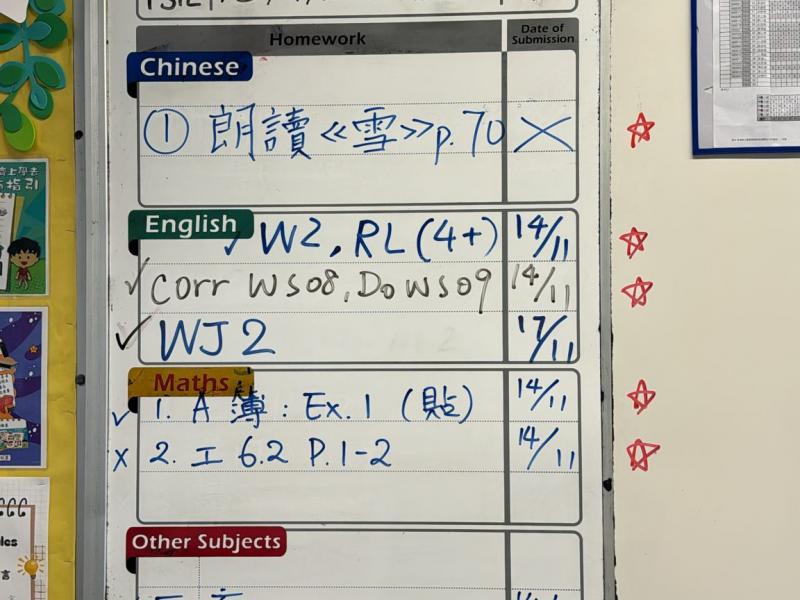 Homework Date of Submission
Chinese
① 朗讀《雪》p.70 ×
English
✓ W2, RL (4+) 14/11
✓ Corr WS08, Do WS09 14/11
✓ WJ2 17/11
Maths
✓ 1. A 簿: Ex.1 (貼) 14/11
x 2. 工 6.2 P.1-2 14/11
Other Subjects
指引